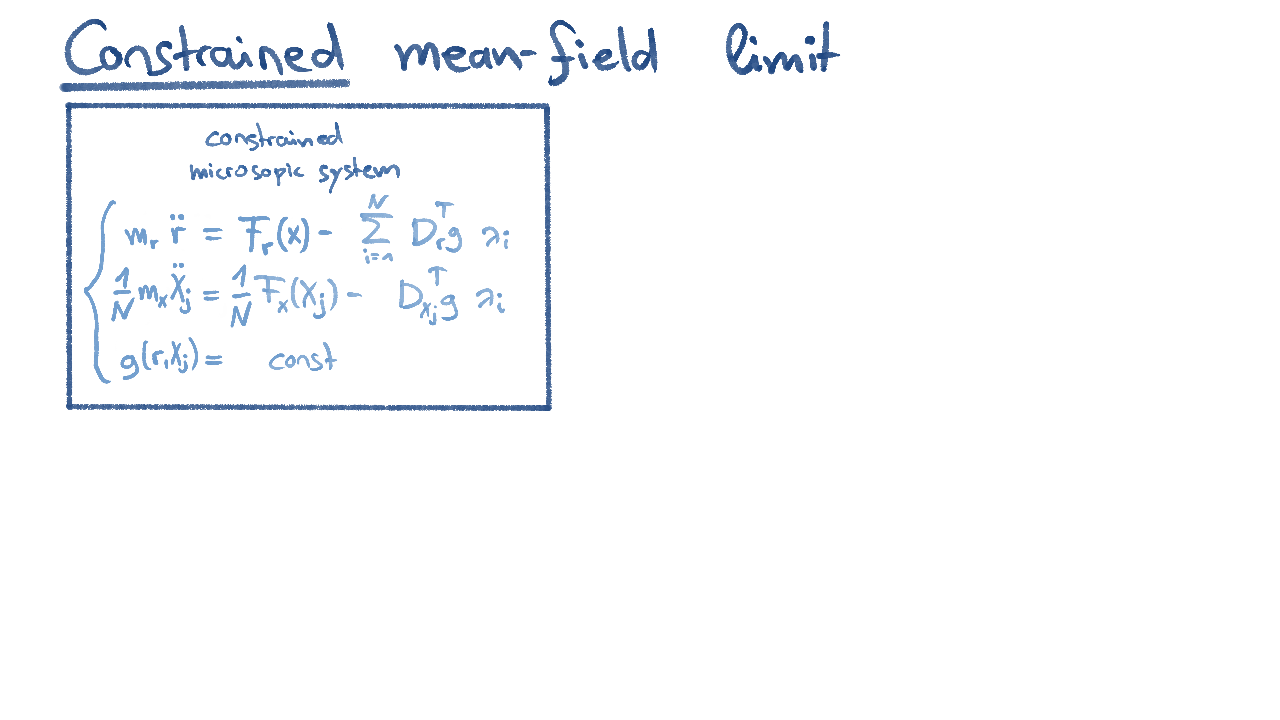 Constrained mean-field limit
constrained
microsopic system
m_r r̈ = F_r(x) - ∑_{i=1}^{N} D_r^T g λ_i
1/N m_x Ẍ_j = 1/N F_x(X_j) - D_{X_j}^T g λ_i
g(r, X_j) = const